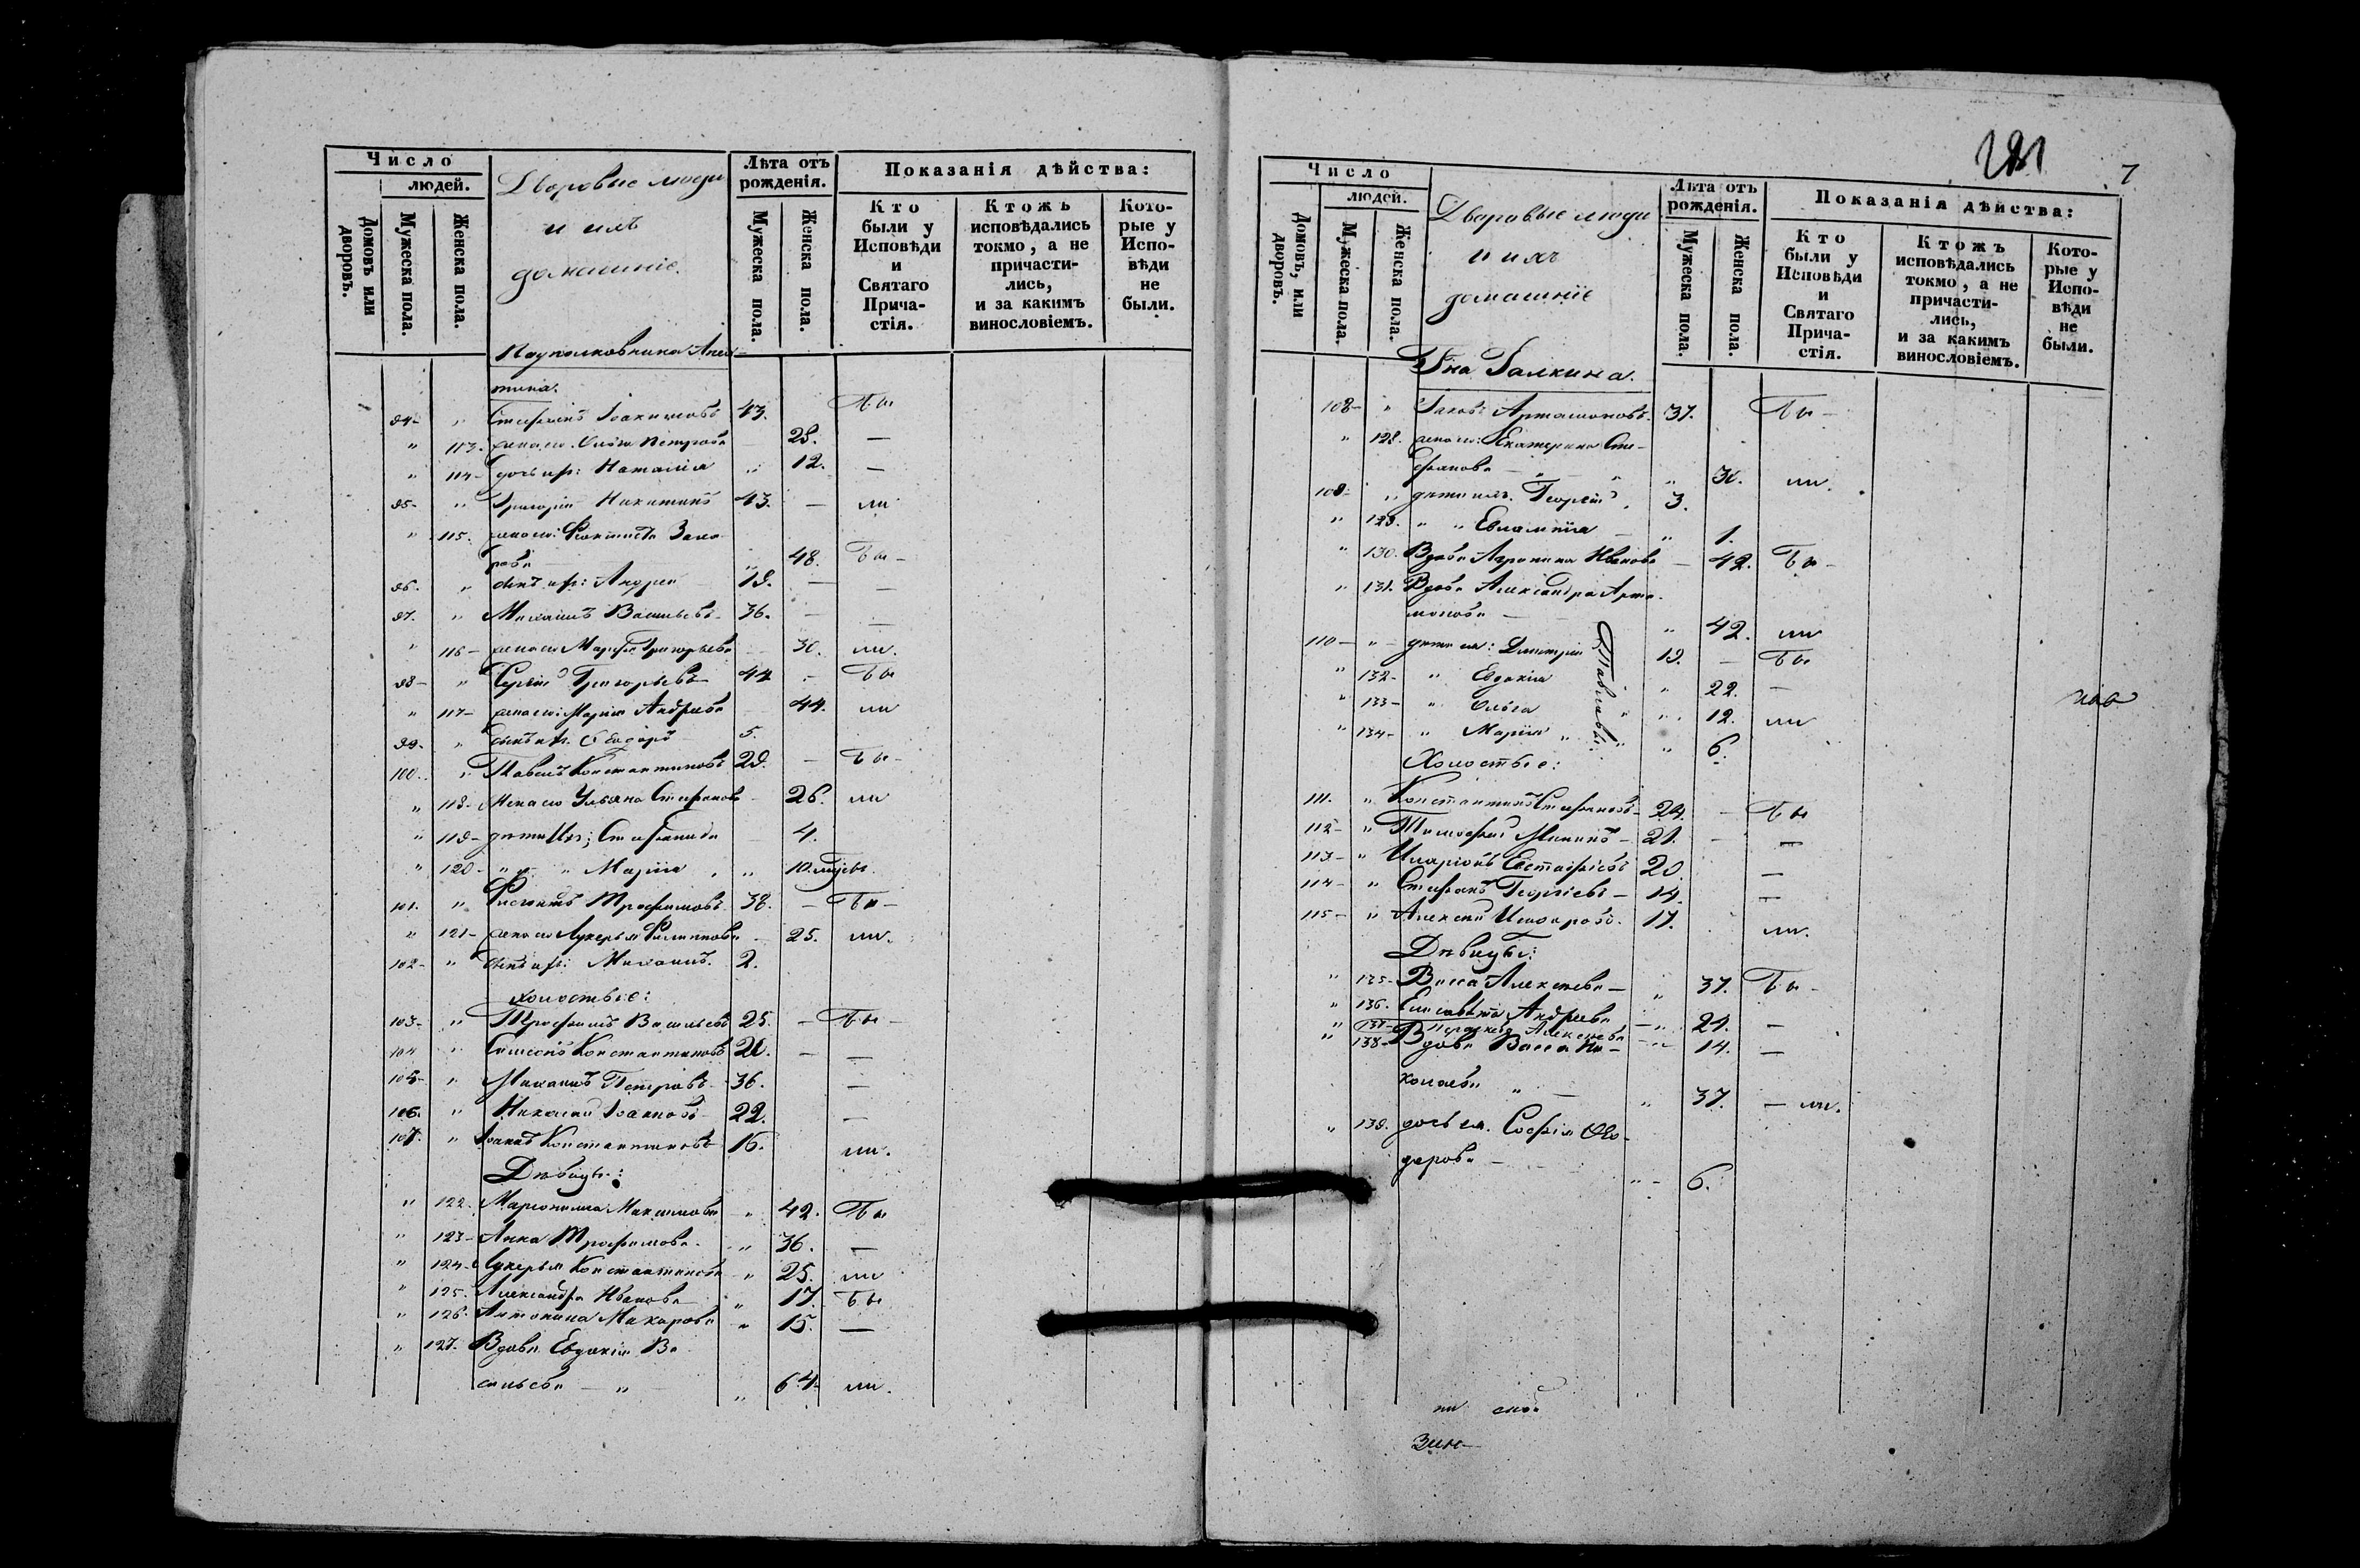 Число
людей.
Домовъ или дворовъ.
Мужеска пола.
Женска пола.
Дворовые люди
и ихъ
домашніе.
Лѣта отъ рожденія.
Мужеска пола.
Женска пола.
Показанія дѣйства:
Кто были у Исповѣди и Святаго Прича-стія.
Ктожъ исповѣдались токмо, а не причасти-лись, и за какимъ винословіемъ.
Кото-рые у Испо-вѣди не были.
Подполковника
94 - " Стефанъ Іоакимовъ 43. бы
" 113. жена ег. Ольга Петрова 28. —
" 114 - дочь их: Наталія " 12. —
95 - " Григорій Никитинъ 43. — ли
" 115. жена ег:
48. бы -
96. " сынъ их: Андрей 19. — —
97. " Михаилъ Васильевъ 36. — —
" 116 - жена ег Марфа Григорьева 30. ли.
98 - " Сергій Григорьевъ 44 - бы
" 117 - жена ег: Марія Андреева 44. ли
99. " сынъ их. Ѳеодоръ 5.
100. " Павелъ Константиновъ 29. — бы -
" 118 - Жена ег Ульяна Стефанова 26. ли
" 119 - дети Их; Стефанида 4.
" 120 - " " Марія " 10.
101. " Трофимовъ 38. — бы -
" 121 - жена ег Лукерья Филиппова 25. ли.
102 - " сынъ их: Михаилъ. 2.
Холостые:
103 - " Трофимъ Васильевъ 25. — бы -
104 " Симеонъ Константиновъ 20. — —
105 - " Михаилъ Петровъ 36. —
106. " Николай Іоанновъ 22. —
107. " Іоаннъ Константиновъ 16. ли.
Дѣвицы:
" 122. Максимова " 42. бы
" 123 - Анна Трофимова. " 36. —
" 124 - Лукерья Константинова " 25. ли
" 125. Александра Иванова " 17. бы
" 126. Антонина Макарова " 15. —
" 127. Вдова Евдокія Ва
сильева — " " 64. ли.
7
Число
людей.
Домовъ, или дворовъ.
Мужеска пола.
Женска пола.
Дворовые люди
и ихъ
домашніе
Лѣта отъ рожденія.
Мужеска пола.
Женска пола.
Показанія дѣйства:
Кто были у Исповѣди и Святаго Прича-стія.
Ктожъ исповѣдались токмо, а не причасти-лись, и за какимъ винословіемъ.
Кото-рые у Испо-вѣди не были.
Гна Галкина.
108 - " Іаковъ Артамоновъ. 37. бы -
" 128. жена ег: Екатерина Сте-
фанова — " " 30. ли.
109 - " дети ихъ. Георгій. 3.
" 129. " " Евлампія — " 1.
" 130. Вдова Агрипина Иванова — 42. бы -
" 131. Вдова Александра Арта-
монова — " 42. ли
110 - " - дети ея: Димитрій 19. — бы
" 132 - " Евдокія " 22. —
" 133 - " Ольга " 12. ли
" 134 - " Марія " " 6.
Павловы:
Холостые:
111. " Константинъ Стефановъ - 24. - бы
112 - " Тимофей Мининъ - 21. - —
113 - " Иларіонъ Евстафіевъ 20. —
114 - " Стефанъ Георгіевъ - 14. —
115 - " Алексей Исидоровъ. 17. ли.
Дѣвицы:
" 135 - Васса Алексеева — " 37. бы -
" 136. Елисавета Андреева — " 21. —
" 137 - Параскева Алексеева — " 14. —
" 138 - Вдова Васса Ни-
колаева " — " 37. — ли.
" 139. дочь ея. Софія Ѳео-
дорова — " - 6.